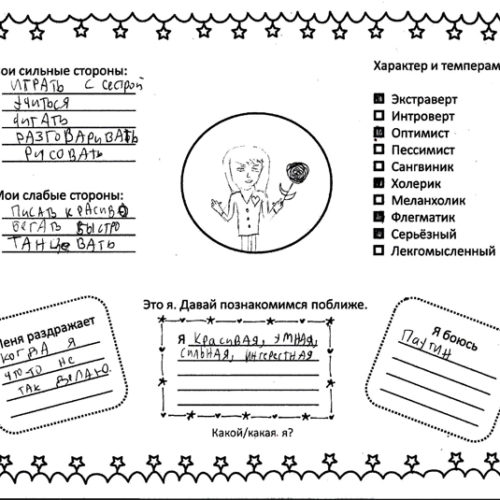 ои сильные стороны:
ИГРАТЬ С СЕСТРОЙ
УЧИТЬСЯ
ЧИТАТЬ
РАЗГОВАРИВАТЬ
РИСОВАТЬ
Мои слабые стороны:
ПИСАТЬ КРАСИВО
БЕГАТЬ БЫСТРО
ТАНЦЕВАТЬ
Характер и темперам
Экстраверт
Интроверт
Оптимист
Пессимист
Сангвиник
Холерик
Меланхолик
Флегматик
Серьёзный
Легкомысленный
Это я. Давай познакомимся поближе.
Меня раздражает
КОГДА Я
ЧТО-ТО НЕ
ТАК ДЕЛАЮ.
Я КРАСИВАЯ, УМНАЯ,
СИЛЬНАЯ, ИНТЕРЕСТНАЯ
Какой/какая. я?
Я боюсь
ПАУТИН